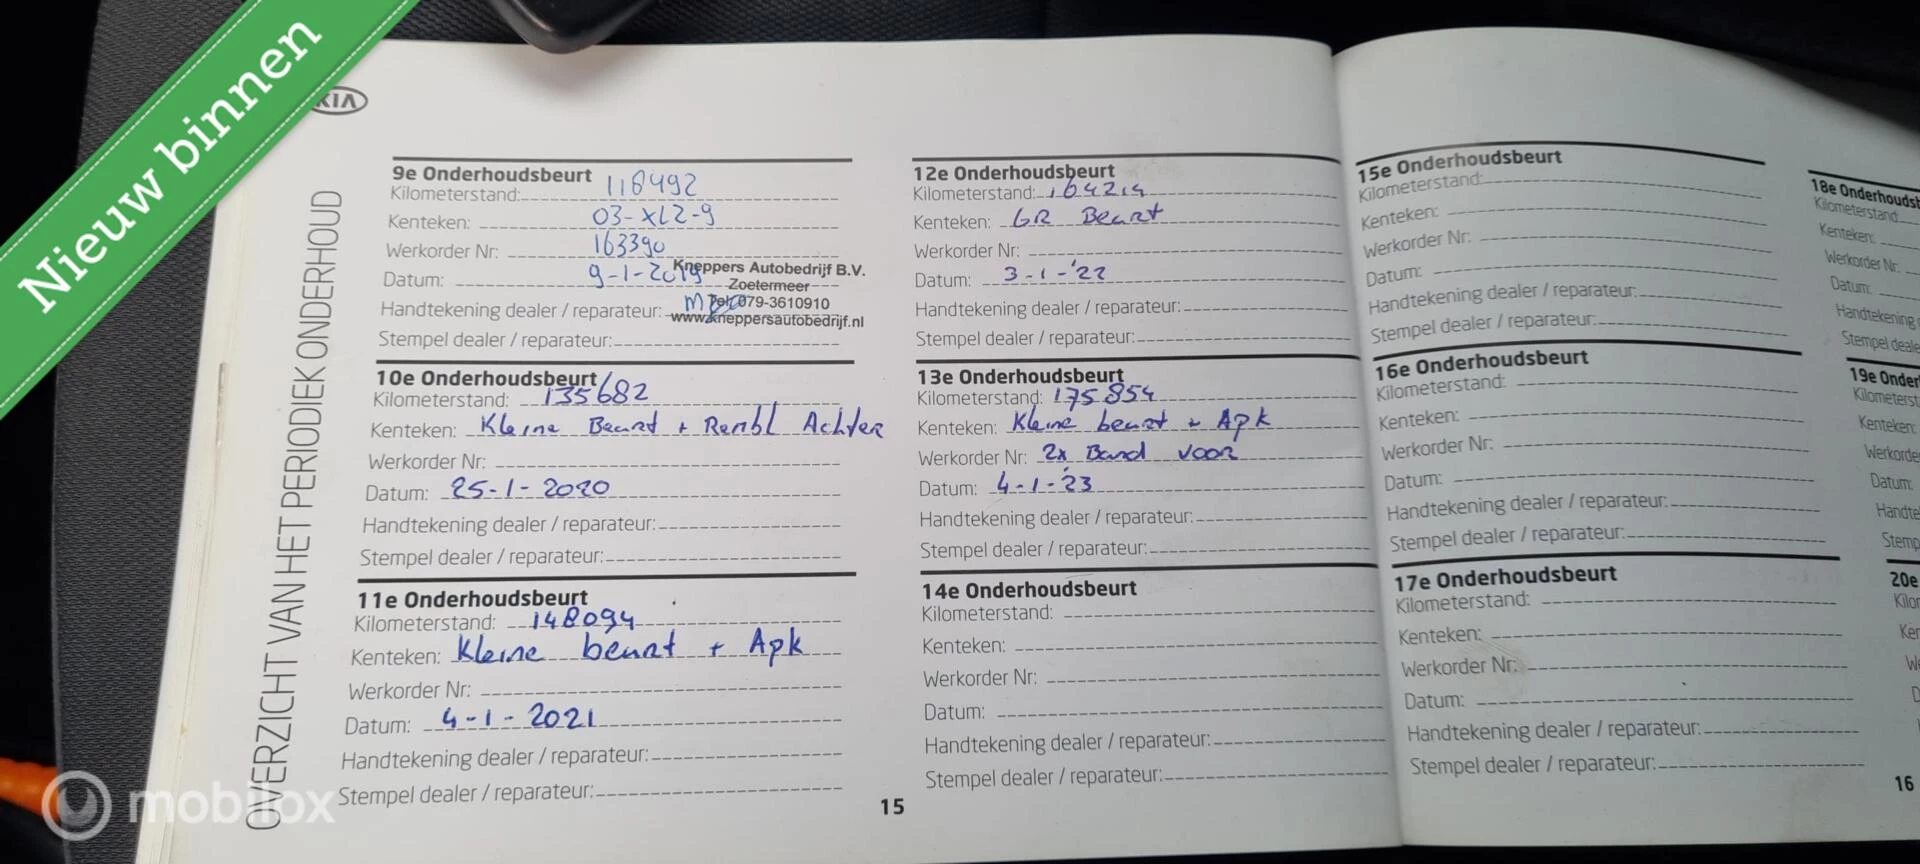 Nieuw binnen
KIA
OVERZICHT VAN HET PERIODIEK ONDERHOUD
9e Onderhoudsbeurt
Kilometerstand: 118492
Kenteken: 03-XLZ-9
Werkorder Nr: 163390
Datum: 9-1-2019
Handtekening dealer / reparateur:
Stempel dealer / reparateur:
Kneppers Autobedrijf B.V.
Zoetermeer
Tel. 079-3610910
www.kneppersautobedrijf.nl
10e Onderhoudsbeurt
Kilometerstand: 135682
Kenteken: Kleine Beurt + Rembl Achter
Werkorder Nr:
Datum: 25-1-2020
Handtekening dealer / reparateur:
Stempel dealer / reparateur:
11e Onderhoudsbeurt
Kilometerstand: 148094
Kenteken: Kleine beurt + Apk
Werkorder Nr:
Datum: 4-1-2021
Handtekening dealer / reparateur:
Stempel dealer / reparateur:
12e Onderhoudsbeurt
Kilometerstand: 164214
Kenteken: GR Beurt
Werkorder Nr:
Datum: 3-1-'22
Handtekening dealer / reparateur:
Stempel dealer / reparateur:
13e Onderhoudsbeurt
Kilometerstand: 175854
Kenteken: Kleine beurt + Apk
Werkorder Nr: 2x Band voor
Datum: 4-1-'23
Handtekening dealer / reparateur:
Stempel dealer / reparateur:
14e Onderhoudsbeurt
Kilometerstand:
Kenteken:
Werkorder Nr:
Datum:
Handtekening dealer / reparateur:
Stempel dealer / reparateur:
15
15e Onderhoudsbeurt
Kilometerstand:
Kenteken:
Werkorder Nr:
Datum:
Handtekening dealer / reparateur:
Stempel dealer / reparateur:
16e Onderhoudsbeurt
Kilometerstand:
Kenteken:
Werkorder Nr:
Datum:
Handtekening dealer / reparateur:
Stempel dealer / reparateur:
17e Onderhoudsbeurt
Kilometerstand:
Kenteken:
Werkorder Nr:
Datum:
Handtekening dealer / reparateur:
Stempel dealer / reparateur:
18e Onderhoudsb
Kilometerstand
Kenteken:
Werkorder Nr:
Datum:
Handtekening
Stempel deale
19e Onder
Kilometerst
Kenteken:
Werkorde
Datum:
Handte
Stemp
20e
Kilo
Ke
W
D
16
mobilox